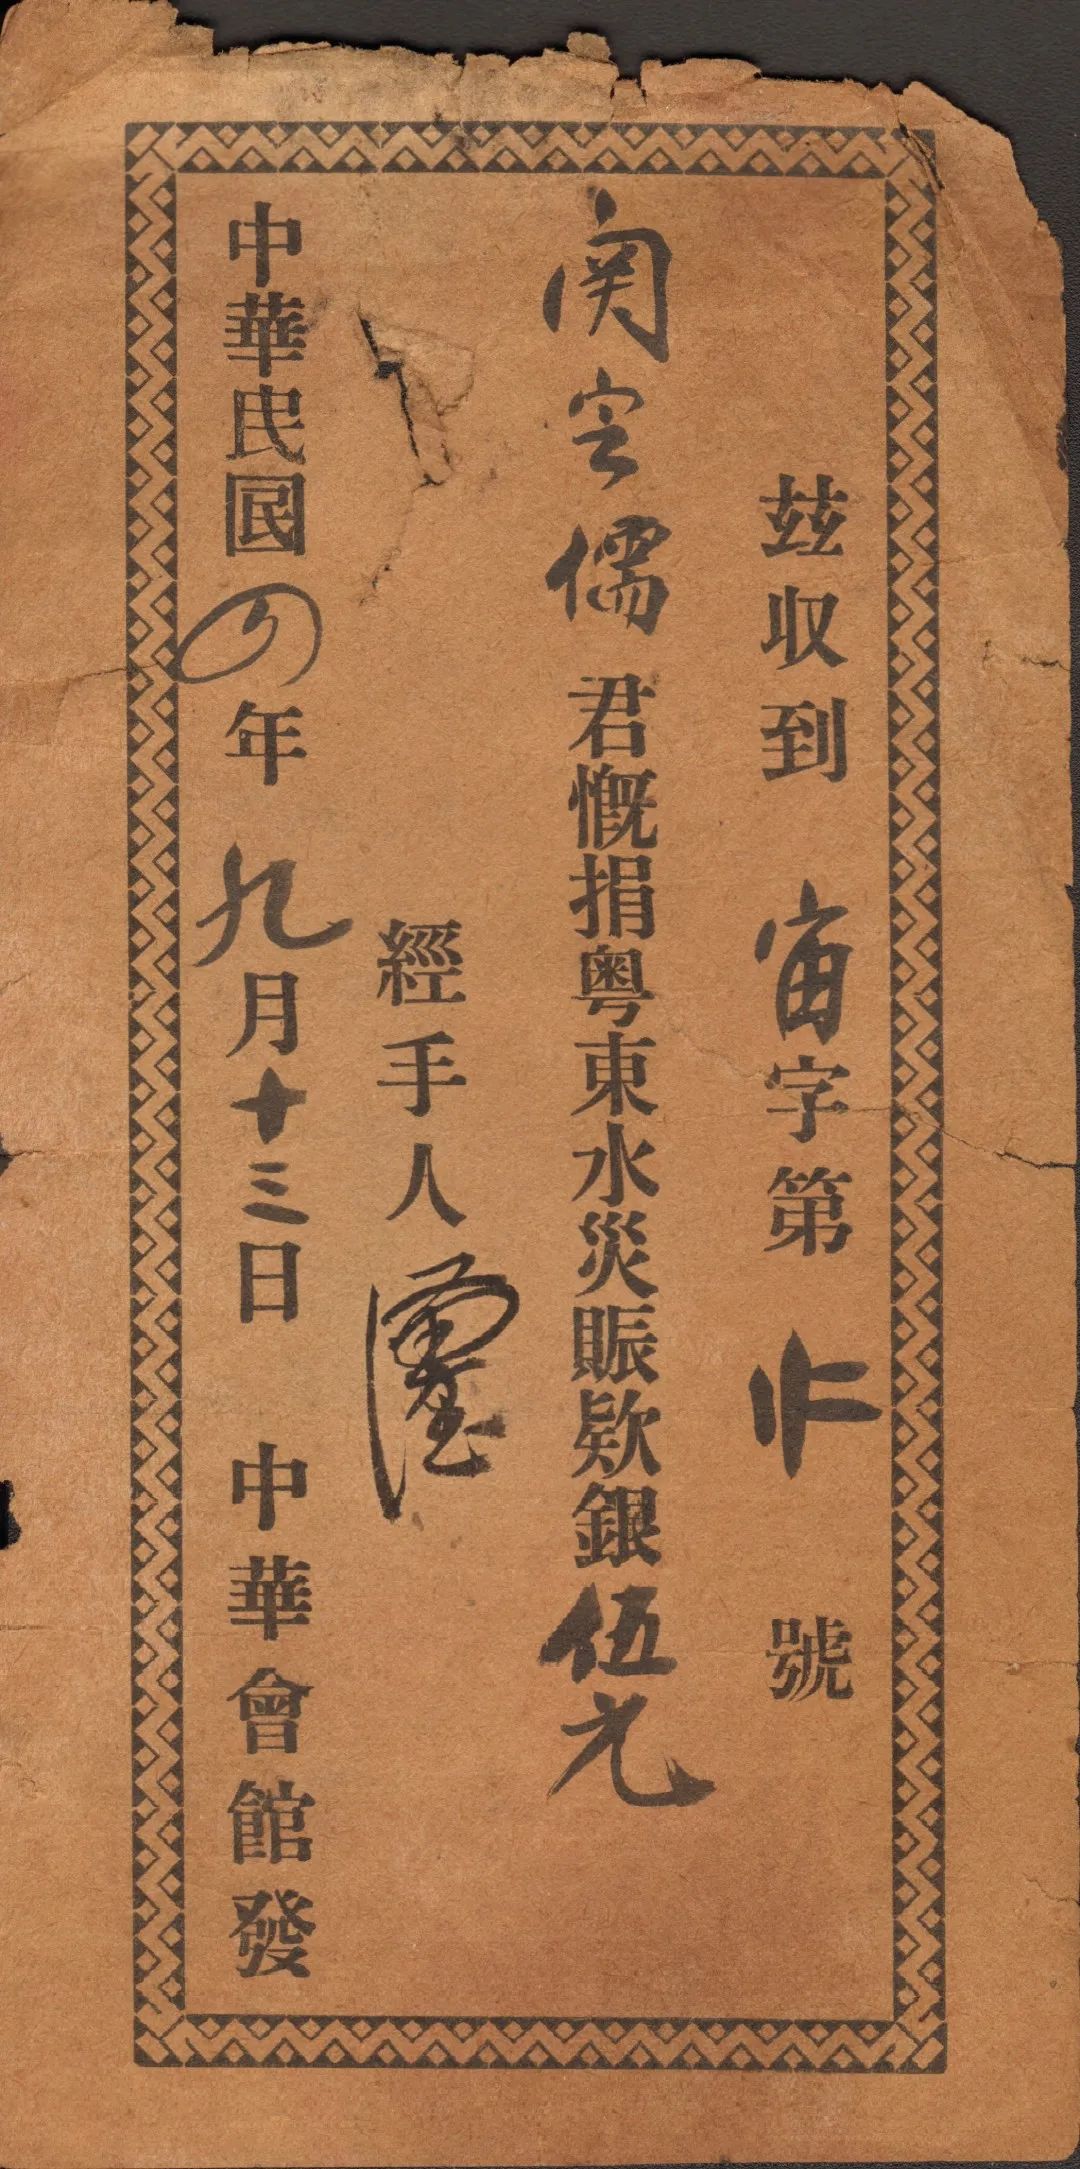 茲收到 宙字第 號
関 儒君慨捐粤東水災賑欵銀伍元
經手人
中華民國四年九月十三日 中華會館發